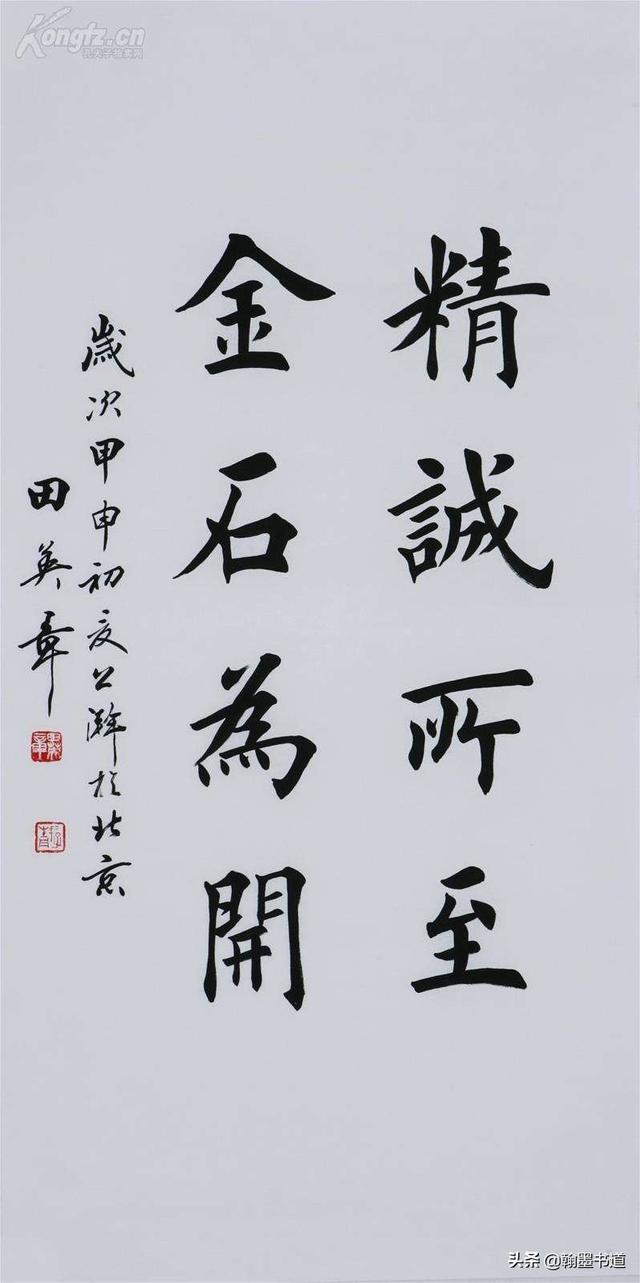 Kongfz.cn
孔夫子拍卖网
精誠所至
金石為開
歲次甲申初夏公澣於北京
田英章
头条 @翰墨书道